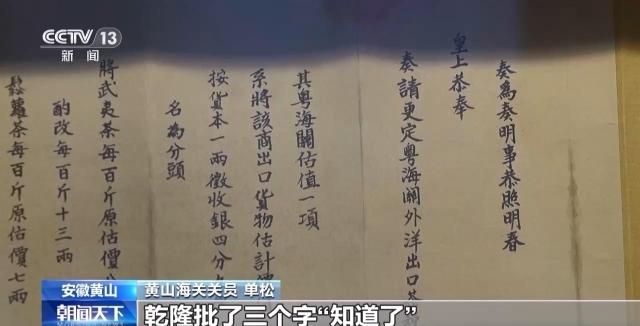 CCTV 13
新闻
奏為奏明事恭照明春
皇上恭奉
奏請更定粵海關外洋出口
其粵海關估值一項
系將該商出口貨物估計價
按貨本一兩徵收銀四分
名為分頭
將武夷茶每百斤原估價
酌改每百斤十三兩
鬆蘿茶每百斤原估價七兩
安徽黄山
黄山海关关员 单松
朝闻天下
乾隆批了三个字“知道了”